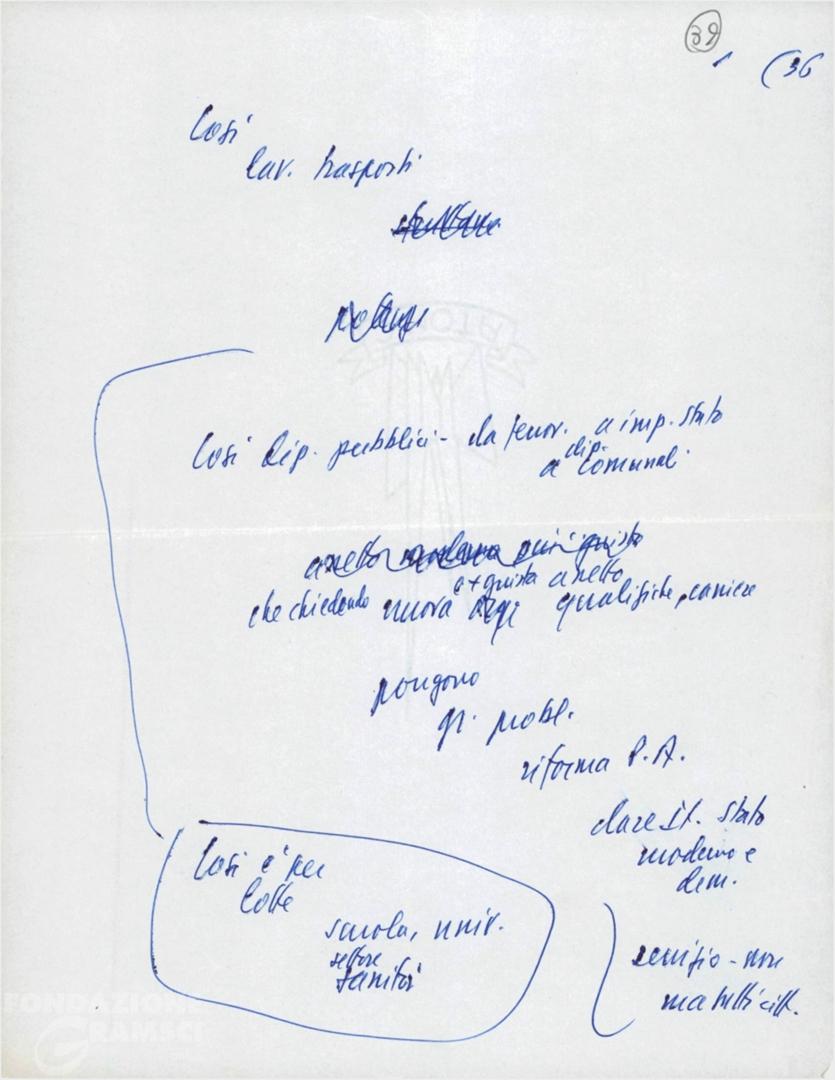 39
(36
Così
lav. trasporti
Così dip. pubblici - da ferrov. a imp. stato
a dip. comunali
che chiedono nuova e + giusta assetto qualifiche, carriere
pongono
gr. probl.
riforma P.A.
dare It. stato
moderno e
dem.
Così è per
lotte
scuola, univ.
settore
sanità
servizio - non
ma tutti citt.
FONDAZIONE
GRAMSCI